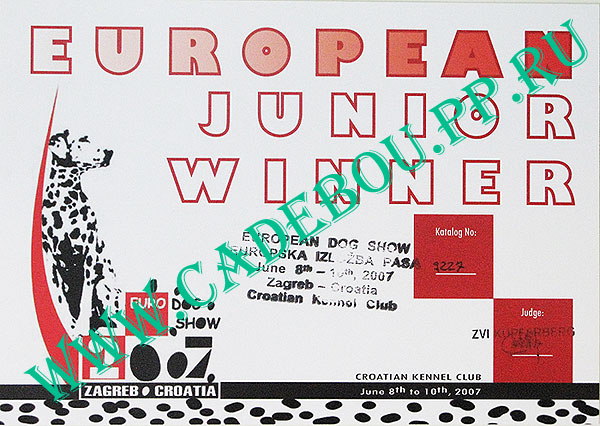 EUROPEAN
JUNIOR
WINNER
WWW.CADEBOU.PP.RU
EUROPEAN DOG SHOW
EUROPSKA IZLOŽBA PASA
June 8th – 10th, 2007
Zagreb – Croatia
Croatian Kennel Club
Katalog No:
9227
Judge:
ZVI KUPFERBERG
EURO DOG
SHOW
2007.
ZAGREB • CROATIA
CROATIAN KENNEL CLUB
June 8th to 10th, 2007